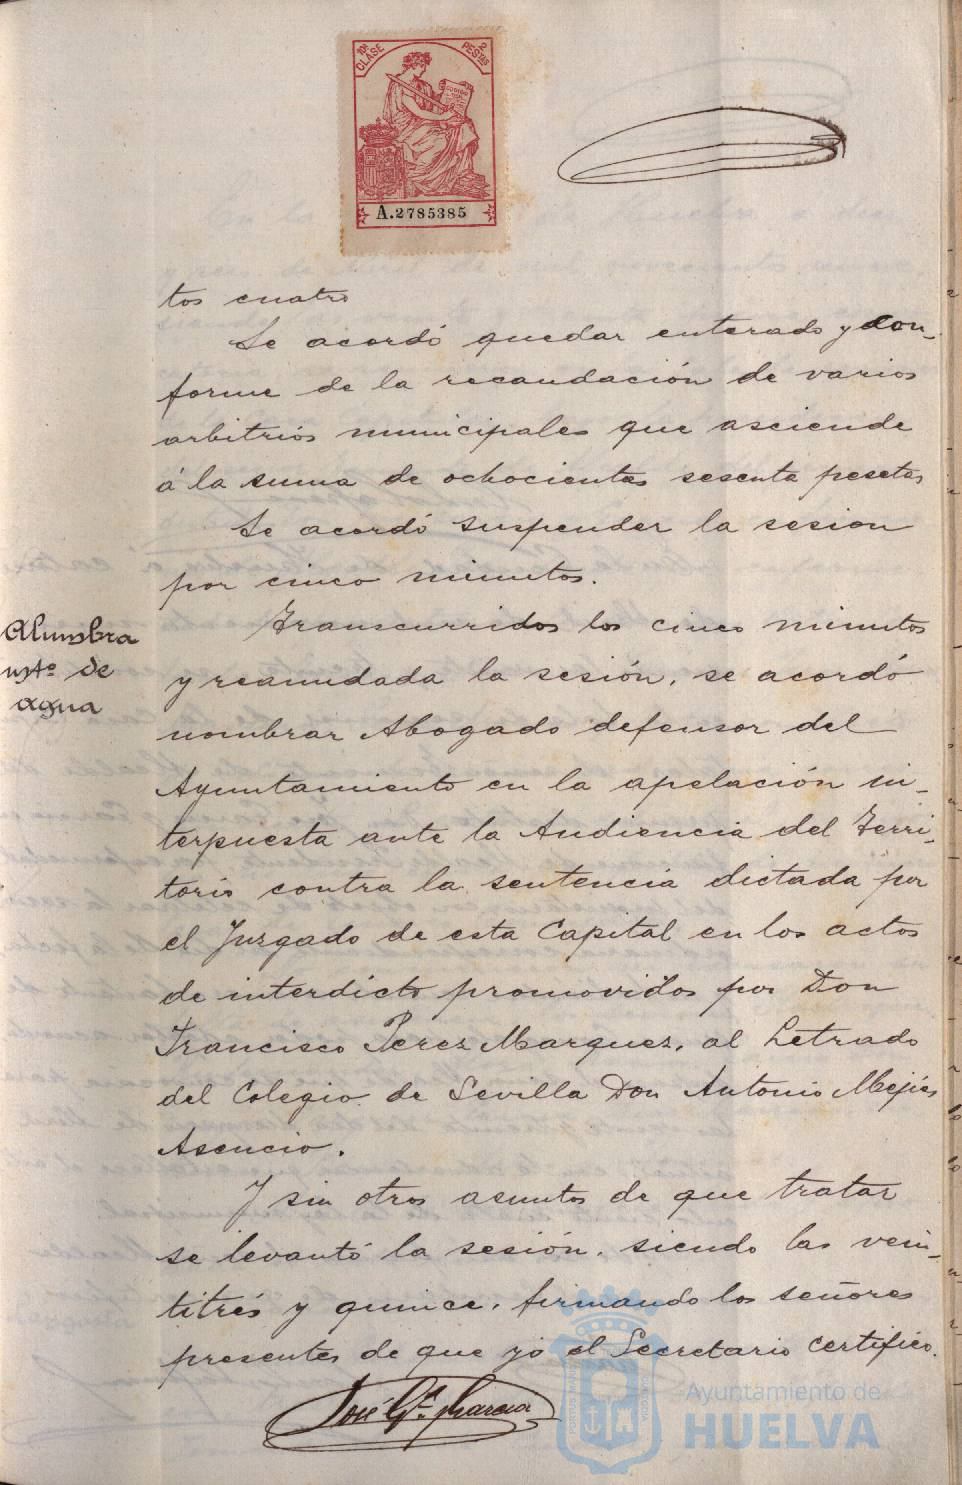 10ª CLASE
2 PESTAS
CODIGO
A.2785385
tos cuatro
Se acordó quedar enterado y con-
forme de la recaudación de varios
arbitrios municipales que asciende
á la suma de ochocientas sesenta pesetas
Se acordó suspender la sesion
por cinco minutos.
Alumbra
mtº de
agua
Transcurridos los cinco minutos
y reanudada la sesión, se acordó
nombrar Abogado defensor del
Ayuntamiento en la apelación in-
terpuesta ante la Audiencia del Terri-
torio contra la sentencia dictada por
el Juzgado de esta Capital en los actos
de interdicto promovidos por Don
Francisco Perez Marquez, al Letrado
del Colegio de Sevilla Don Antonio Mejías
Asencio.
Y sin otros asuntos de que tratar
se levantó la sesión, siendo las vein-
titrés y quince, firmando los señores
presentes de que yo el Secretario certifico.
José Gª Garcia
Ayuntamiento de
HUELVA